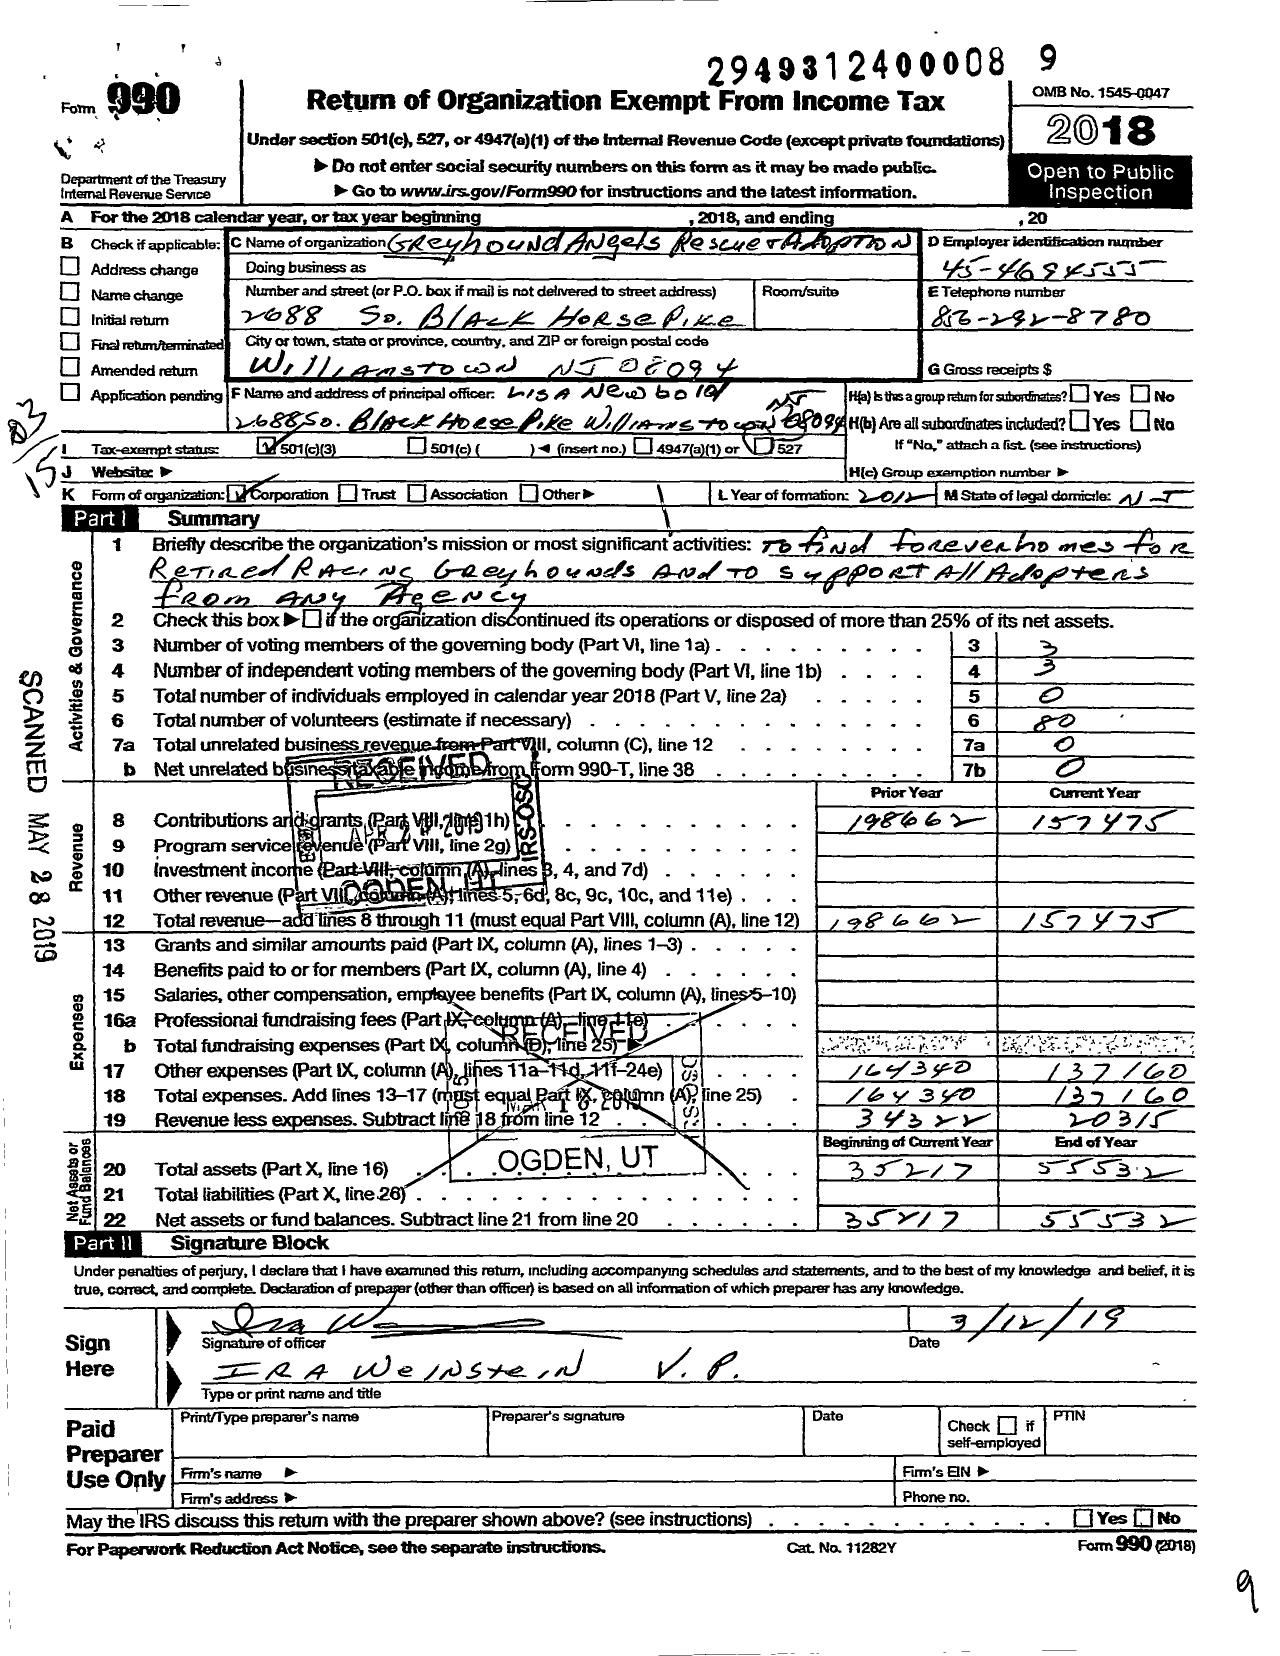 29493124000089
Form 990
Return of Organization Exempt From Income Tax
OMB No. 1545-0047
2018
Under section 501(c), 527, or 4947(a)(1) of the Internal Revenue Code (except private foundations)
▶ Do not enter social security numbers on this form as it may be made public.
▶ Go to www.irs.gov/Form990 for instructions and the latest information.
Department of the Treasury
Internal Revenue Service
Open to Public
Inspection
A For the 2018 calendar year, or tax year beginning , 2018, and ending , 20
B Check if applicable:
Address change
Name change
Initial return
Final return/terminated
Amended return
Application pending
C Name of organization GREyhound Angels Rescue + Adoption
Doing business as
Number and street (or P.O. box if mail is not delivered to street address) Room/suite
2688 So. Black Horse Pike
City or town, state or province, country, and ZIP or foreign postal code
Williamstown NJ 08094
D Employer identification number
45-4694555
E Telephone number
856-292-8780
G Gross receipts $
F Name and address of principal officer: Lisa Newbold
2688 So. Black Horse Pike Williamstown NJ 08094
H(a) Is this a group return for subordinates? Yes No
H(b) Are all subordinates included? Yes No
If "No," attach a list. (see instructions)
I Tax-exempt status: 501(c)(3) 501(c) ( ) ◀ (insert no.) 4947(a)(1) or 527
J Website: ▶
H(c) Group exemption number ▶
K Form of organization: Corporation Trust Association Other ▶
L Year of formation: 2012
M State of legal domicile: NJ
Part I Summary
1 Briefly describe the organization's mission or most significant activities: To find forever homes for
Retired Racing Greyhounds And to support All Adopters
from any Agency
2 Check this box ▶ if the organization discontinued its operations or disposed of more than 25% of its net assets.
3 Number of voting members of the governing body (Part VI, line 1a) 3 3
4 Number of independent voting members of the governing body (Part VI, line 1b) 4 3
5 Total number of individuals employed in calendar year 2018 (Part V, line 2a) 5 0
6 Total number of volunteers (estimate if necessary) 6 80
7a Total unrelated business revenue from Part VIII, column (C), line 12 7a 0
b Net unrelated business taxable income from Form 990-T, line 38 7b 0
Activities & Governance
Prior Year Current Year
8 Contributions and grants (Part VIII, line 1h) 198662 157475
9 Program service revenue (Part VIII, line 2g)
10 Investment income (Part VIII, column (A), lines 3, 4, and 7d)
11 Other revenue (Part VIII, column (A), lines 5, 6d, 8c, 9c, 10c, and 11e)
12 Total revenue—add lines 8 through 11 (must equal Part VIII, column (A), line 12) 198662 157475
Revenue
13 Grants and similar amounts paid (Part IX, column (A), lines 1–3)
14 Benefits paid to or for members (Part IX, column (A), line 4)
15 Salaries, other compensation, employee benefits (Part IX, column (A), lines 5–10)
16a Professional fundraising fees (Part IX, column (A), line 11e)
b Total fundraising expenses (Part IX, column (D), line 25) ▶
17 Other expenses (Part IX, column (A), lines 11a–11d, 11f–24e) 164340 137160
18 Total expenses. Add lines 13–17 (must equal Part IX, column (A), line 25) 164340 137160
19 Revenue less expenses. Subtract line 18 from line 12 34322 20315
Expenses
Beginning of Current Year End of Year
20 Total assets (Part X, line 16) 35217 55532
21 Total liabilities (Part X, line 26)
22 Net assets or fund balances. Subtract line 21 from line 20 35217 55532
Net Assets or
Fund Balances
RECEIVED
2019
IRS-OSC
OGDEN, UT
RECEIVED
OGDEN, UT
SCANNED MAY 28 2019
Part II Signature Block
Under penalties of perjury, I declare that I have examined this return, including accompanying schedules and statements, and to the best of my knowledge and belief, it is
true, correct, and complete. Declaration of preparer (other than officer) is based on all information of which preparer has any knowledge.
Sign
Here
Signature of officer Date
3/12/19
IRA Weinstein V.P.
Type or print name and title
Paid
Preparer
Use Only
Print/Type preparer's name Preparer's signature Date Check if self-employed PTIN
Firm's name ▶ Firm's EIN ▶
Firm's address ▶ Phone no.
May the IRS discuss this return with the preparer shown above? (see instructions) Yes No
For Paperwork Reduction Act Notice, see the separate instructions. Cat. No. 11282Y Form 990 (2018)
9